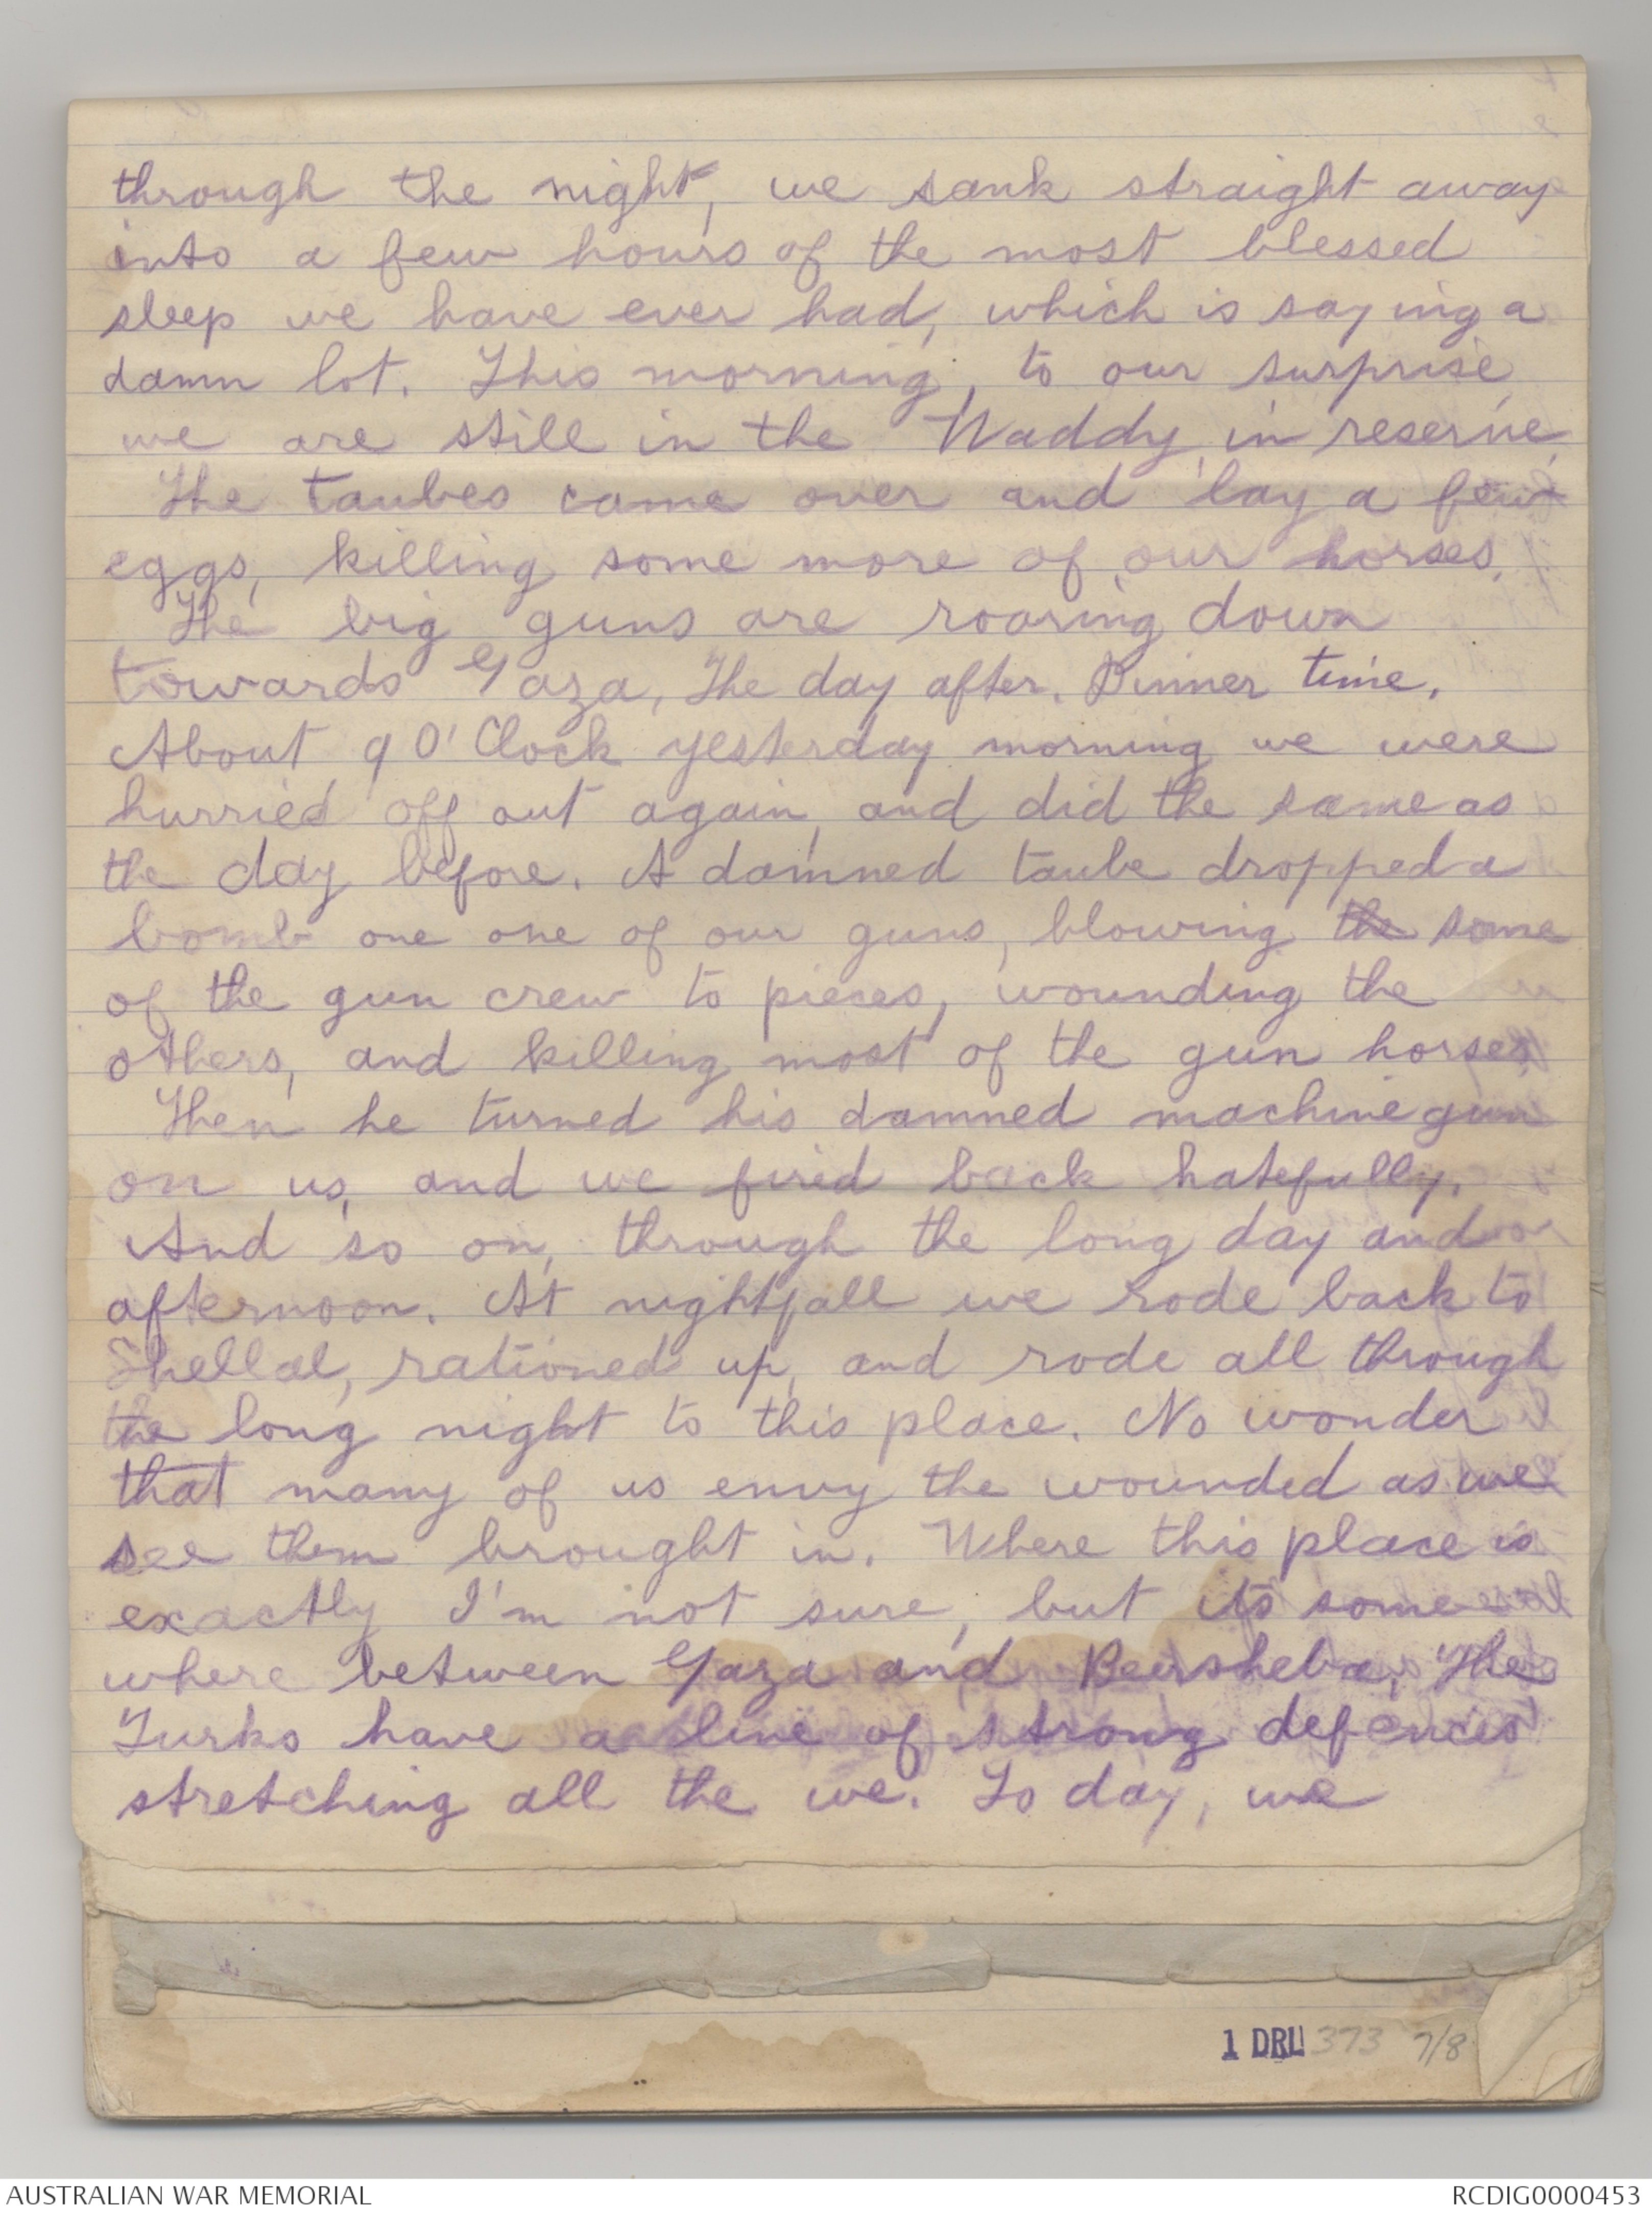 through the night, we sank straight away
into a few hours of the most blessed
sleep we have ever had, which is saying a
damn lot. This morning, to our surprise,
we are still in the Waddy, in reserve.
The taubes came over and lay a few
eggs, killing some more of our horses.
The big guns are roaring down
towards Gaza, The day after. Dinner time.
About 9 O'Clock yesterday morning we were
hurried off out again, and did the same as
the day before. A damned taube dropped a
bomb one one of our guns, blowing the some
of the gun crew to pieces, wounding the
others, and killing most of the gun horses.
Then he turned his damned machine gun
on us, and we fired back hatefully.
And so on, through the long day and
afternoon. At nightfall we rode back to
Shellal, rationed up, and rode all through
the long night to this place. No wonder
that many of us envy the wounded as we
see them brought in. Where this place is
exactly I'm not sure, but its some
where between Gaza and Beersheba. The
Turks have a line of strong defences
stretching all the we. To day, we
1 DRL 373 7/8
AUSTRALIAN WAR MEMORIAL
RCDIG0000453